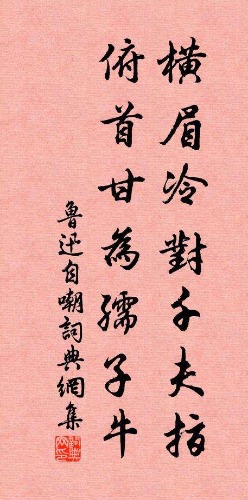 橫眉冷對千夫指
俯首甘為孺子牛
魯迅自嘲詞典網集